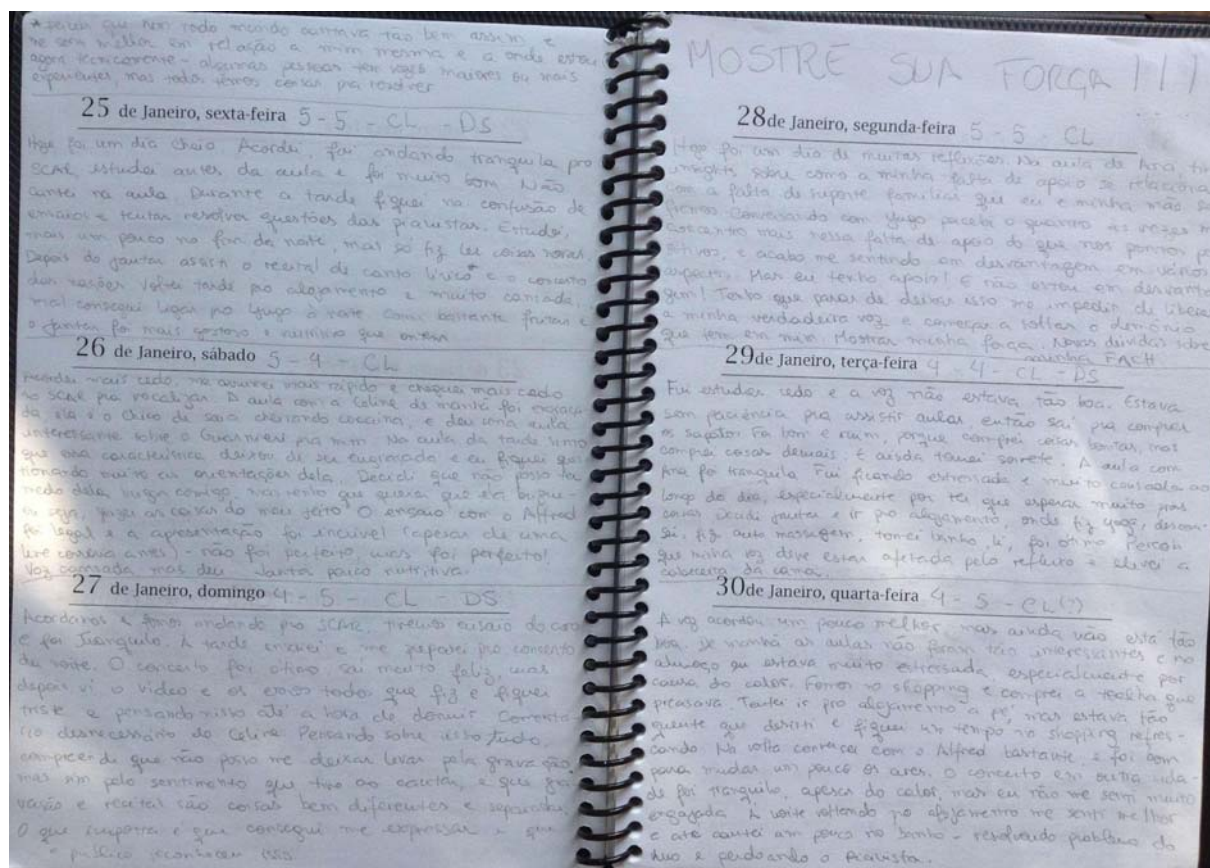 * percebi que nem todo mundo cantava tão bem assim e
me senti melhor em relação a mim mesma e a onde estou
agora tecnicamente - algumas pessoas tem vozes maiores ou mais
experientes, mas todos temos coisas pra resolver
25 de Janeiro, sexta-feira 5 - 5 - CL - DS
Hoje foi um dia cheio Acordei, fui andando tranquila pro
SCAR estudei antes da aula e foi muito bom Não
cantei na aula Durante a tarde fiquei na confusão de
ensaios e tentar resolver questões das pianistas. Estudei
mais um pouco no fim da noite, mas só fiz ler coisas novas
Depois do jantar assisti o recital de canto lírico* e o concerto
das nações Voltei tarde pro alojamento e muito cansada,
mal consegui ligar pro Yugo à noite Comi bastante frutas e
o jantar foi mais gostoso e nutritivo que ontem
26 de Janeiro, sábado 5 - 4 - CL
Acordei mais cedo, me arrumei mais rápido e cheguei mais cedo
no SCAR pra vocalizar A aula com a Celine de manhã foi
ela é o Chico de saia cheirando cocaína, e deu uma aula
interessante sobre o Guarnieri pra mim Na aula da tarde
que essa característica deixou de ser engraçada e eu fiquei
muito as orientações dela. Decidi que não posso ter
medo dela
fazer as coisas do meu jeito O ensaio com o Alfred
foi legal e a apresentação foi incível (apesar de uma
antes) - não foi perfeito, mas foi perfeito!
Voz cansada mas deu Janta pouco nutritiva
27 de Janeiro, domingo 4 - 5 - CL - DS
Acordamos e fomos andando pro SCAR tivemos ensaio do coro
e foi tranquilo. A tarde ensaiei e me preparei pro concerto
da noite. O concerto foi ótimo saí muito feliz, mas
depois vi o vídeo e os erros todos que fiz e fiquei
triste e pensando nisso até a hora de dormir Comentá-
rio desnecessário da Celine Pensando sobre isso tudo,
compreendi que não posso me deixar levar pela gravação
mas sim pelo sentimento que tive ao cantar, e que gra-
vação e recital são coisas bem diferentes e separadas
O que importa é que consegui me expressar e que
o público reconheceu isso.
MOSTRE SUA FORÇA!!!
28 de Janeiro, segunda-feira 5 - 5 - CL
Hoje foi um dia de muitas reflexões. Na aula de Ana tive
insights sobre como a minha falta de apoio se relaciona
com a falta de suporte familiar que eu e minha mãe
tivemos Conversando com Yugo percebi o quanto às vezes me
concentro mais nessa falta de apoio do que nos pontos po-
sitivos, e acabo me sentindo em desvantagem em vários
aspectos. Mas eu tenho apoio! E não estou em desvanta-
gem! Tenho que parar de deixar isso me impedir de liberar
a minha verdadeira voz e começar a soltar o demônio
que tem em mim Mostrar minha força. Novas dúvidas sobre
minha FACH
29 de Janeiro, terça-feira 4 - 4 - CL - DS
Fui estudar cedo e a voz não estava tão boa. Estava
sem paciência pra assistir aulas então saí pra comprar
os sapatos Foi bom e ruim, porque comprei coisas bonitas, mas
comprei coisas demais. E ainda tomei sorvete. A aula com
Ana foi tranquila Fui ficando estressada e muito cansada ao
longo do dia, especialmente por ter que esperar muito pras
coisas Decidi jantar e ir pro alojamento, onde fiz yoga, descan-
sei, fiz auto massagem, tomei banho, li, foi ótimo Percebi
que minha voz deve estar afetada pelo refluxo e elevei a
cabeceira da cama.
30 de Janeiro, quarta-feira 4 - 5 - CL(?)
A voz acordou um pouco melhor, mas ainda não está tão
boa. De manhã as aulas não foram tão interessantes e no
almoço eu estava muito estressada, especialmente por
causa do calor. Fomos no shopping e comprei a toalha que
precisava Tentei ir pro alojamento a pé, mas estava tão
quente que desisti e fiquei um tempo no shopping refres-
cando Na volta conversei com o Alfred bastante, e foi bom
para mudar um pouco os ares. O concerto em outra cida-
de foi tranquilo, apesar do calor, mas eu não me senti muito
engajada A noite voltando pro alojamento me senti melhor
e até cantei um pouco no banho - resolvendo problema do
e perdoando o Pianista.